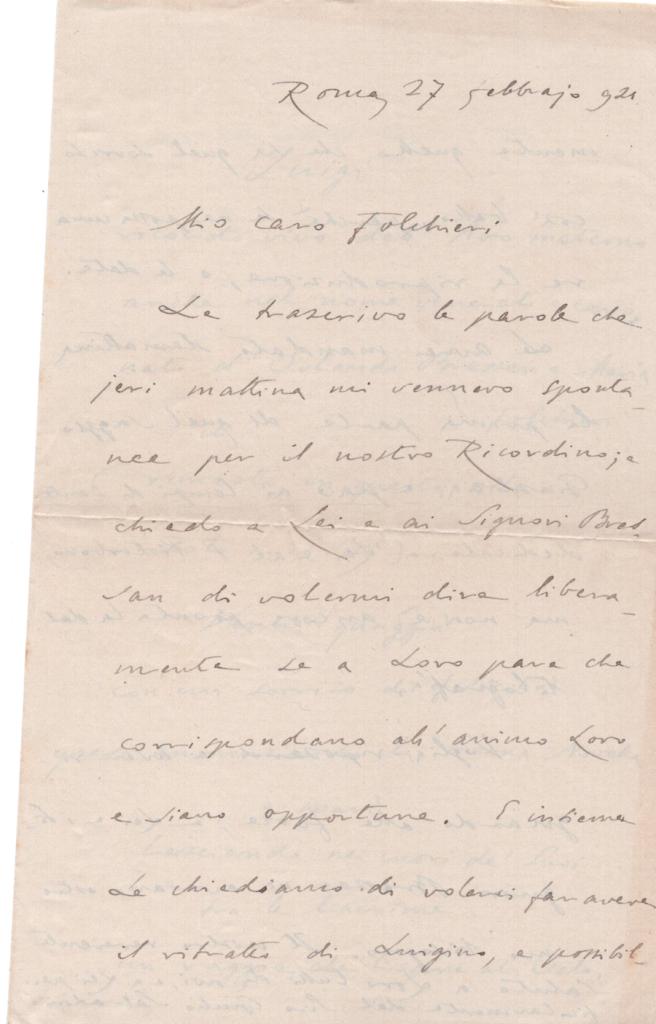 Roma, 27 febbrajo 921
Mio caro Folchieri
Le trascrivo le parole che
jeri mattina mi vennero sponta-
nee per il nostro Ricordino; e
chiedo a Lei e ai Signori Bres-
san di volermi dire libera-
mente se a Loro pare che
corrispondano all'animo Loro
e siano opportune. E insieme
Le chiediamo di volerci far avere
il ritratto di Luigino, e possibil-